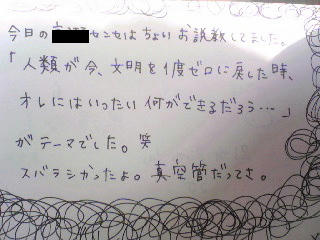 今日のセンセはちょいお説教してました。
「人類が今、文明を1度ゼロに戻した時、
オレにはいったい何ができるだろう…」
がテーマでした。笑
スバラシかったよ。真空管だってさ。